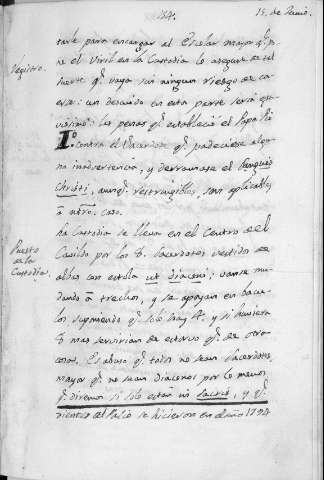 184.
15. de Junio.
tarle para encargar al Escolar mayor qͤ. p
ne el Viril en la Custodia lo asegure de tal
Registro.
suerte qͤ. vaya sin ningun riesgo de ca
erse: un descuido en esta parte seria gra
visimo: las penas qͤ. estableció el Papa Pio
Iº. contra el Sacerdote qͤ. padeciese algu
na inadvertencia, y derramase el Sanguis
Christi, aunqͤ. restringibles, son aplicables
á ntrͦ. caso.
Puesto de la Custodia.
La Custodia se lleva en el Centro del
Cavildo por los Sacerdotes vestidos de
albas con estolas ut diaconi; vanse mu
dando á trechos, y se apoyan en bacu
los suponiendo qͤ. solo hay 4. y si huviera
mas servirian de estorvo qͤ. de otra
cosa. Es abuso qͤ. todos no sean Sacerdotes,
mayor qͤ. no sean diaconos por lo menos
qͤ. diremos si solo estan in Sacris, y qͤ.
vientes del Palio se hicieron en el año 1794